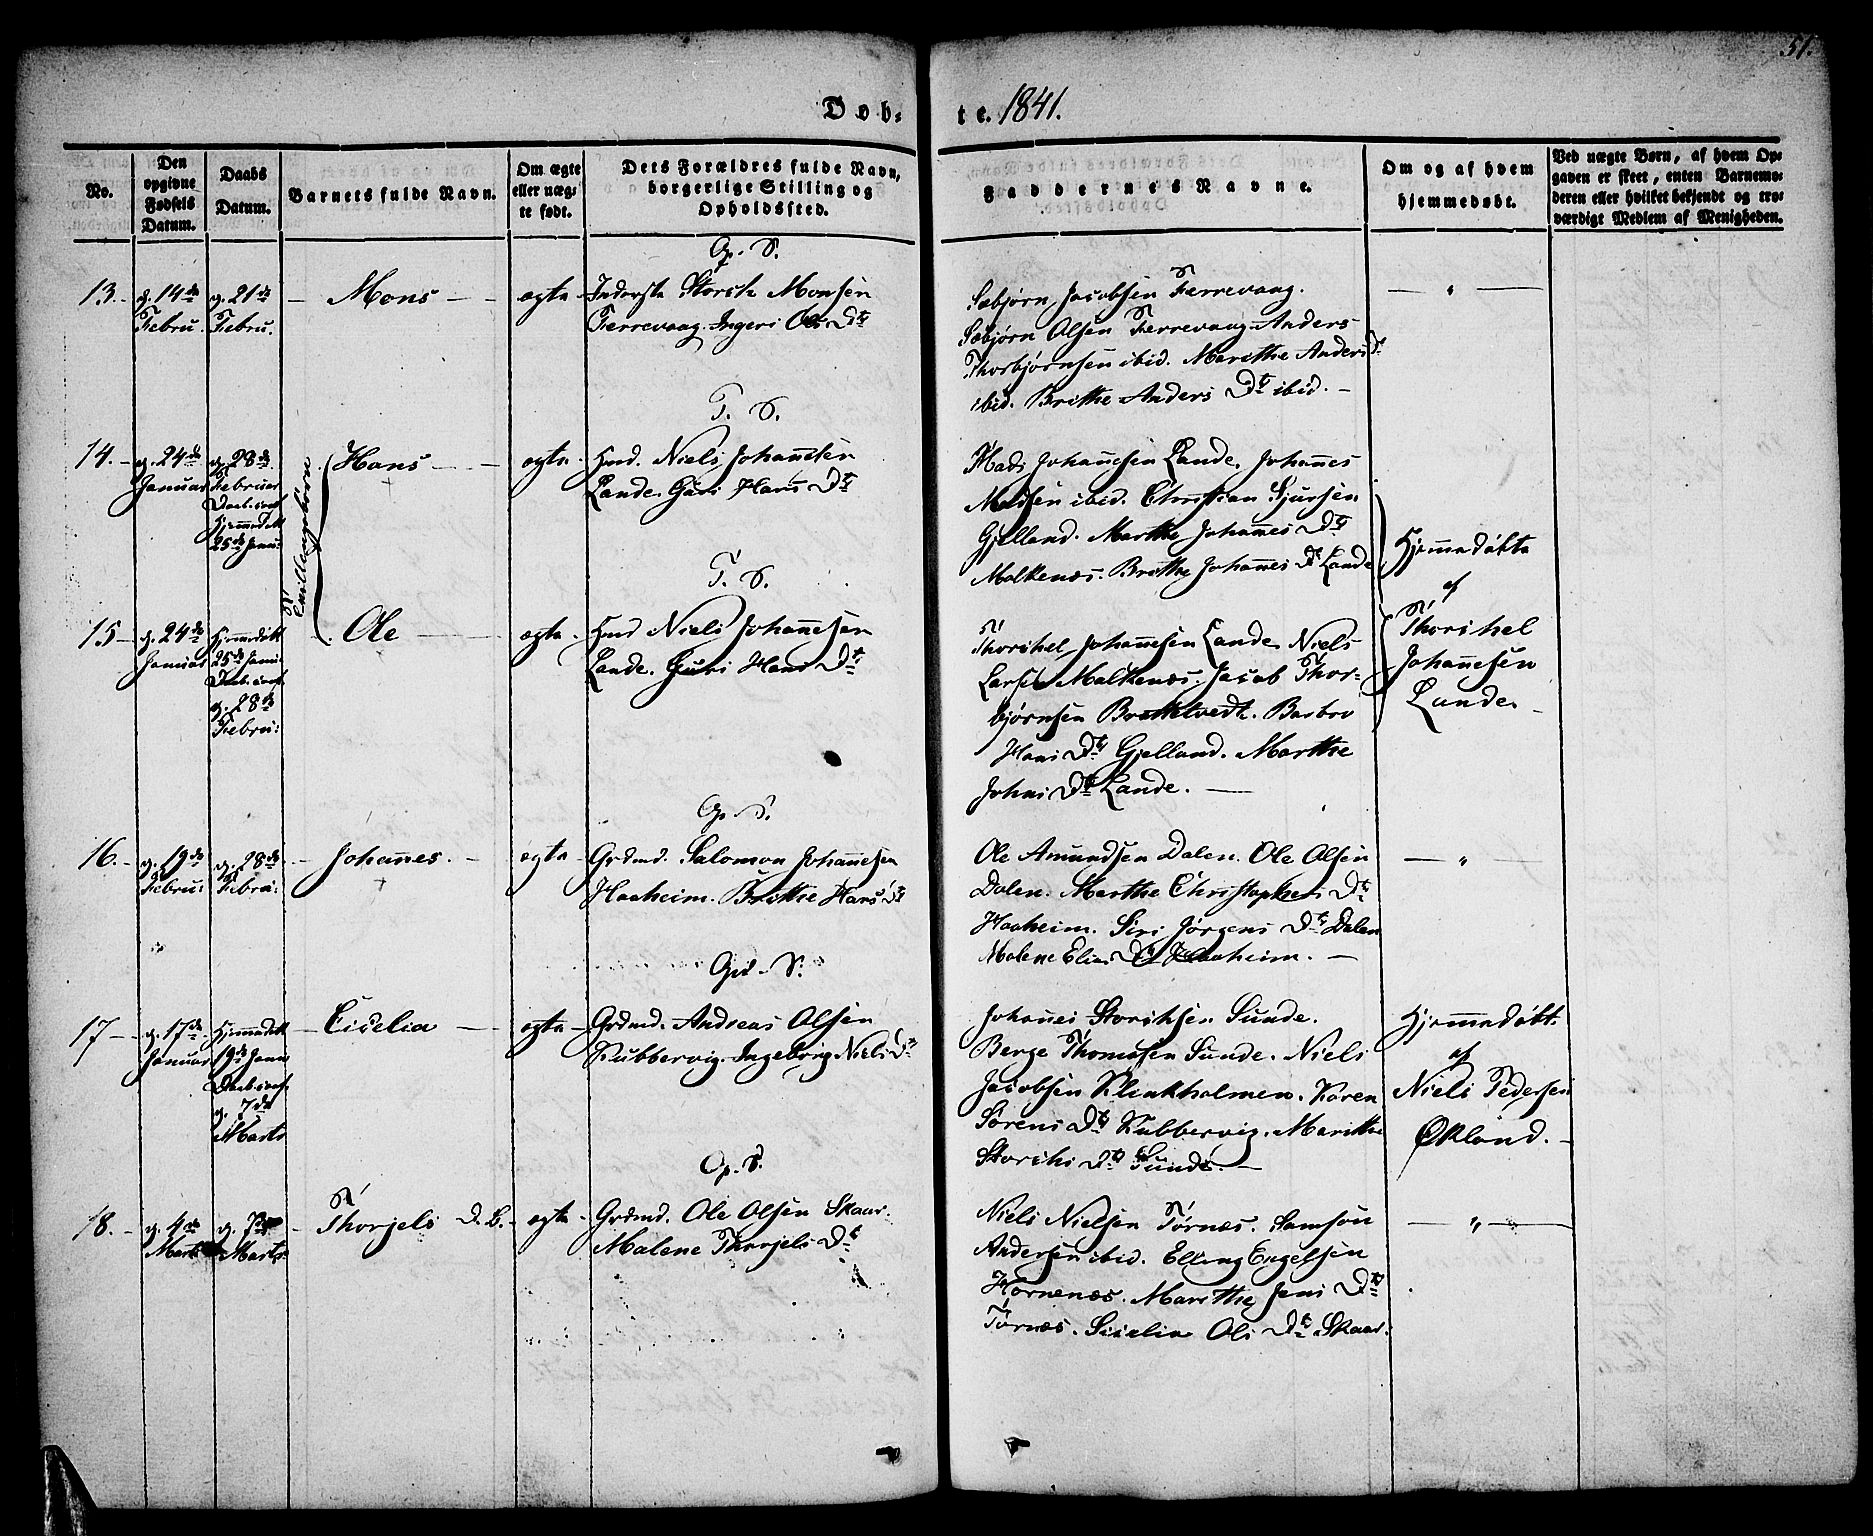 51.
Døb-
te. 1841.
No.
Den
opgivne
Fødsels
Datum.
Daabs
Datum.
Barnets fulde Navn.
Om ægte
eller uæg-
te født.
Dets Forældres fulde Navn,
borgerlige Stilling og
Opholdssted.
Faddernes Navne.
Om og af hvem
hjemmedøbt.
Ved uægte Børn, af hvem Op-
gaven er skeet, enten Barnemo-
deren eller hvilket bekjendt og tro-
værdigt Medlem af Menigheden.
13.
d. 14de
Febru.
d. 21de
Febru.
Mons
ægte
S.
Inderste Storck Monsen
Færrevaag. Ingeri Ols Dtr
Sæbjørn Jacobsen Færrevaag.
Sæbjørn Olsen Færrevaag. Anders
Thorbjørnsen ibid. Marithe Anders Dtr
ibid. Brithe Anders Dtr ibid.
14.
d. 24de
Januar
d. 28de
Februar
Hjemmedøbt
25de Janu:
Tvillingebørn
Hans
ægte
T. S.
Hmd. Niels Johannesen
Lande. Guri Hans Dtr
Mads Johannesen Lande. Johannes
Madsen ibid. Christian Sjursen
Gjelland. Marthe Johannes Dtr
Molkenæs. Brithe Johannes Dtr Lande
Hjemmedøbte
af
Thorchel
Johannesen
Lande.
15
d. 24de
Januar
Hjemmedøbt
25de Janu:
d. 28de
Febru:
Ole
ægte
T. S.
Hmd Niels Johannesen
Lande. Guri Hans Dtr
Thorchel Johannesen Lande. Niels
Larsen Molkenæs. Jacob Thor-
bjørnsen Brattetvedt. Barbro
Hans Dtr Gjelland. Marthe
Johns Dtr Lande.
16.
d. 19de
Febru:
d. 28de
Febru:
Johannes.
ægte
S.
Grdmd. Salomon Johannesen
Haaheim. Brithe Hans Dtr
Ole Amundsen Dalen. Ole Olsen
Dalen. Marthe Christophers Dtr
Haaheim. Siri Jørgens Dtr Dalen
Malene Elias Dtr Haaheim.
17
d. 17de
Januar
Hjemmedøbt
19de Janu
d. 7de
Marts
Cicelia
ægte
S.
Grdmd. Andreas Olsen
Kubbervig. Ingeborg Niels Dtr
Johannes Storchsen Sunde.
Berge Thomasen Sunde. Niels
Jacobsen Klenkholmen. Karen
Sørens Dtr Kubbervig. Marithe
Storchs Dtr Sunde.
Hjemmedøbt.
af
Niels Pedersen
Økland.
18.
d. 4de
Marts
d. 7de
Marts
Thorjels D. B.
ægte
S.
Grdmd. Ole Olsen Skaar.
Malene Thorjels Dtr
Niels Nielsen Tørnæs. Samson
Andersen ibid. Elling Engelsen
Hornenæs. Marithe Jens Dtr
Tørnæs. Cicelia Ols Dtr Skaar.